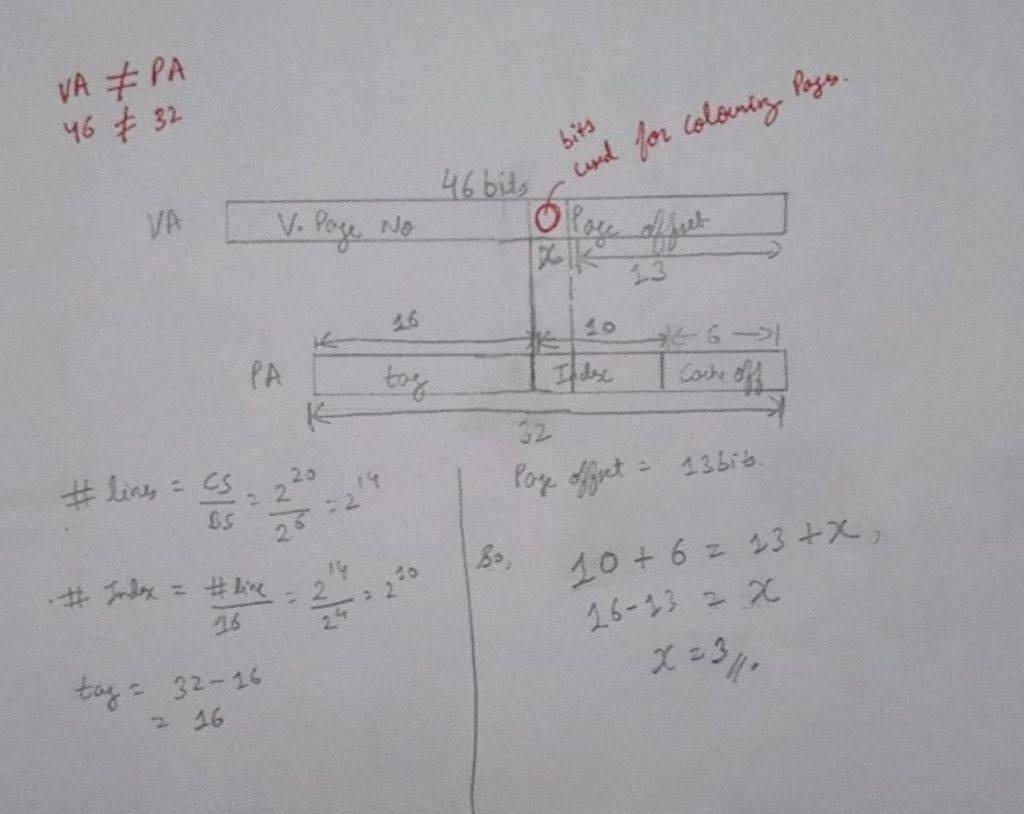 VA ≠ PA
46 ≠ 32
bits
used for colouring Pages.
46 bits
VA V. Page No Page offset
x 13
16 10 6
PA tag Index Cache off
32
# lines = CS/BS = 2^20/2^6 = 2^14
# Index = # line/16 = 2^14/2^4 = 2^10
tag = 32-16
= 16
Page offset = 13bit.
So, 10 + 6 = 13 + x,
16-13 = x
x = 3//.